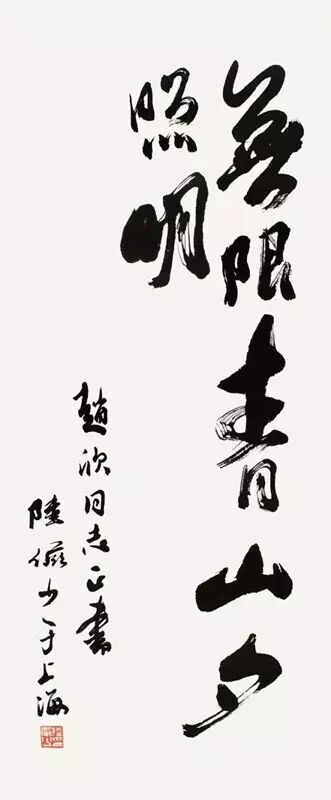 無限青山夕
照明
趙欣同志正書
陸儼少于上海